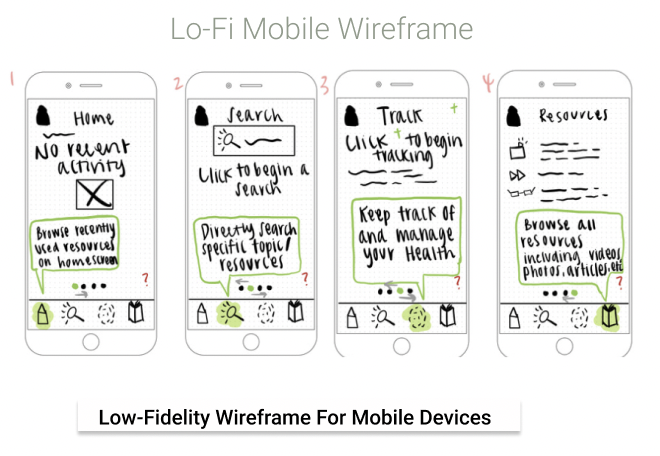 Lo-Fi Mobile Wireframe
1
Home
No recent
activity
Browse recently
used resources
on homescreen
?
2
Search
Click to begin a
search
Directly search
specific topic/
resources
?
3
Track +
Click + to begin
tracking
Keep track of
and manage
your Health
?
4
Resources
Browse all
resources
including videos,
photos, articles, etc
?
Low-Fidelity Wireframe For Mobile Devices